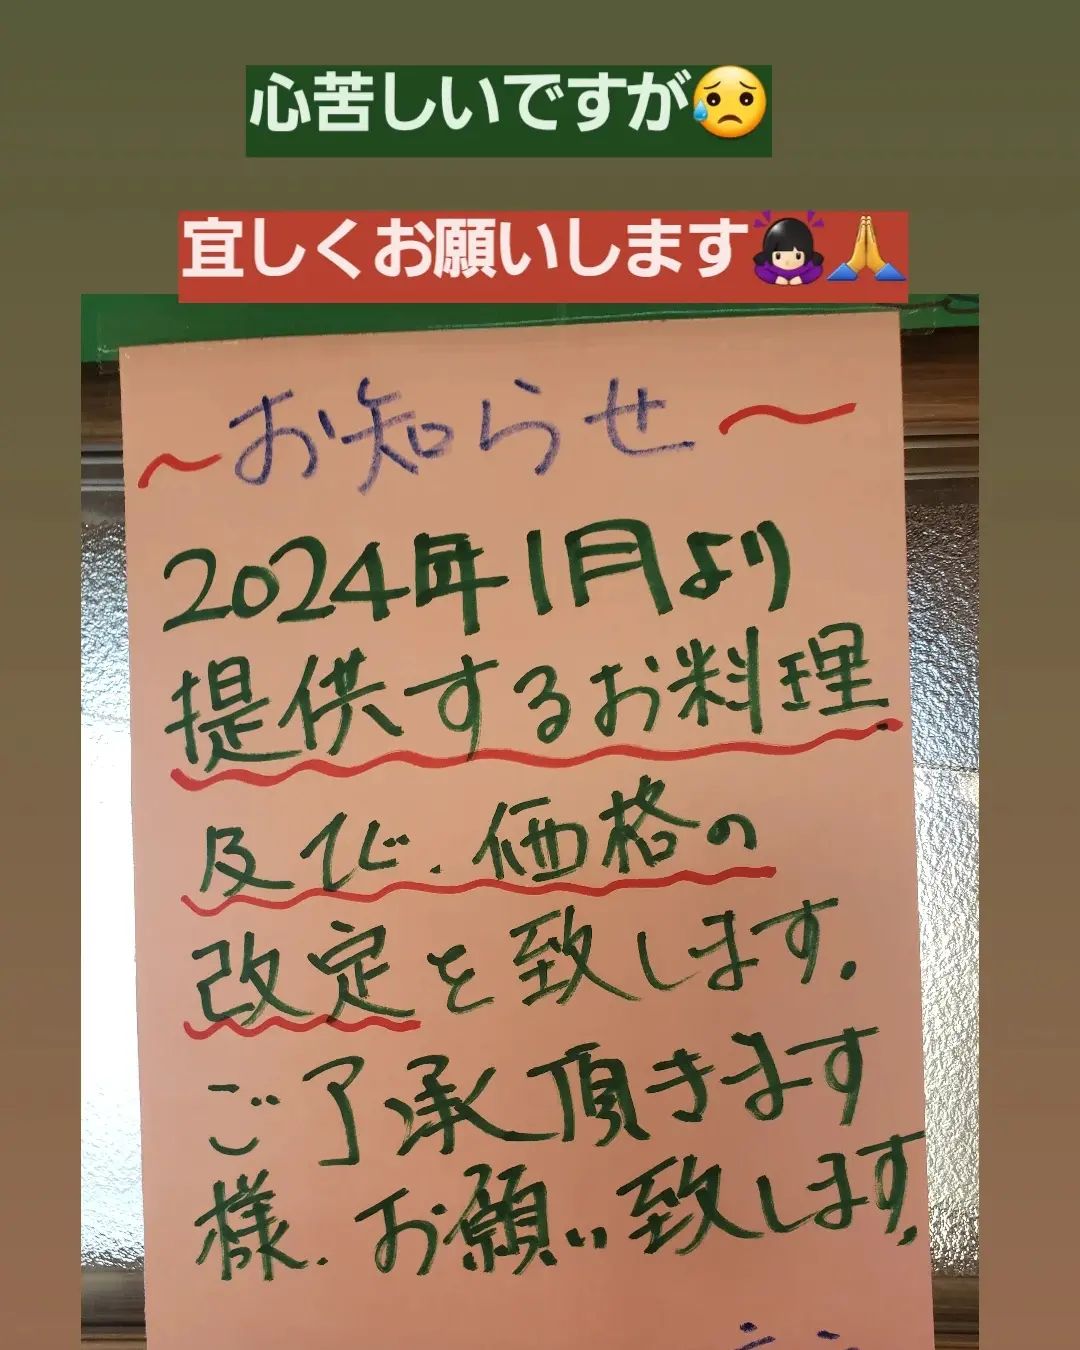 心苦しいですが😥
宜しくお願いします🙇🏻‍♀️🙏
～お知らせ～
2024年1月より
提供するお料理
及び、価格の
改定を致します。
ご了承頂きます
様、お願い致します。